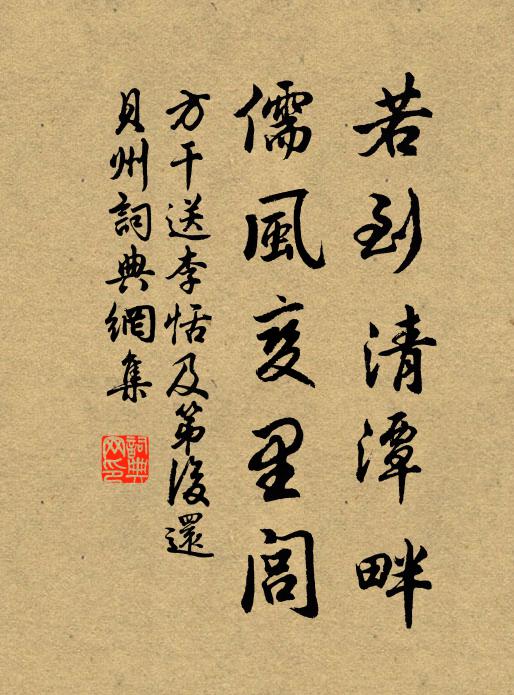 若到清潭畔
儒風变里閭
方干送李恬及第後還
貝州詞典網集
詞典
网印